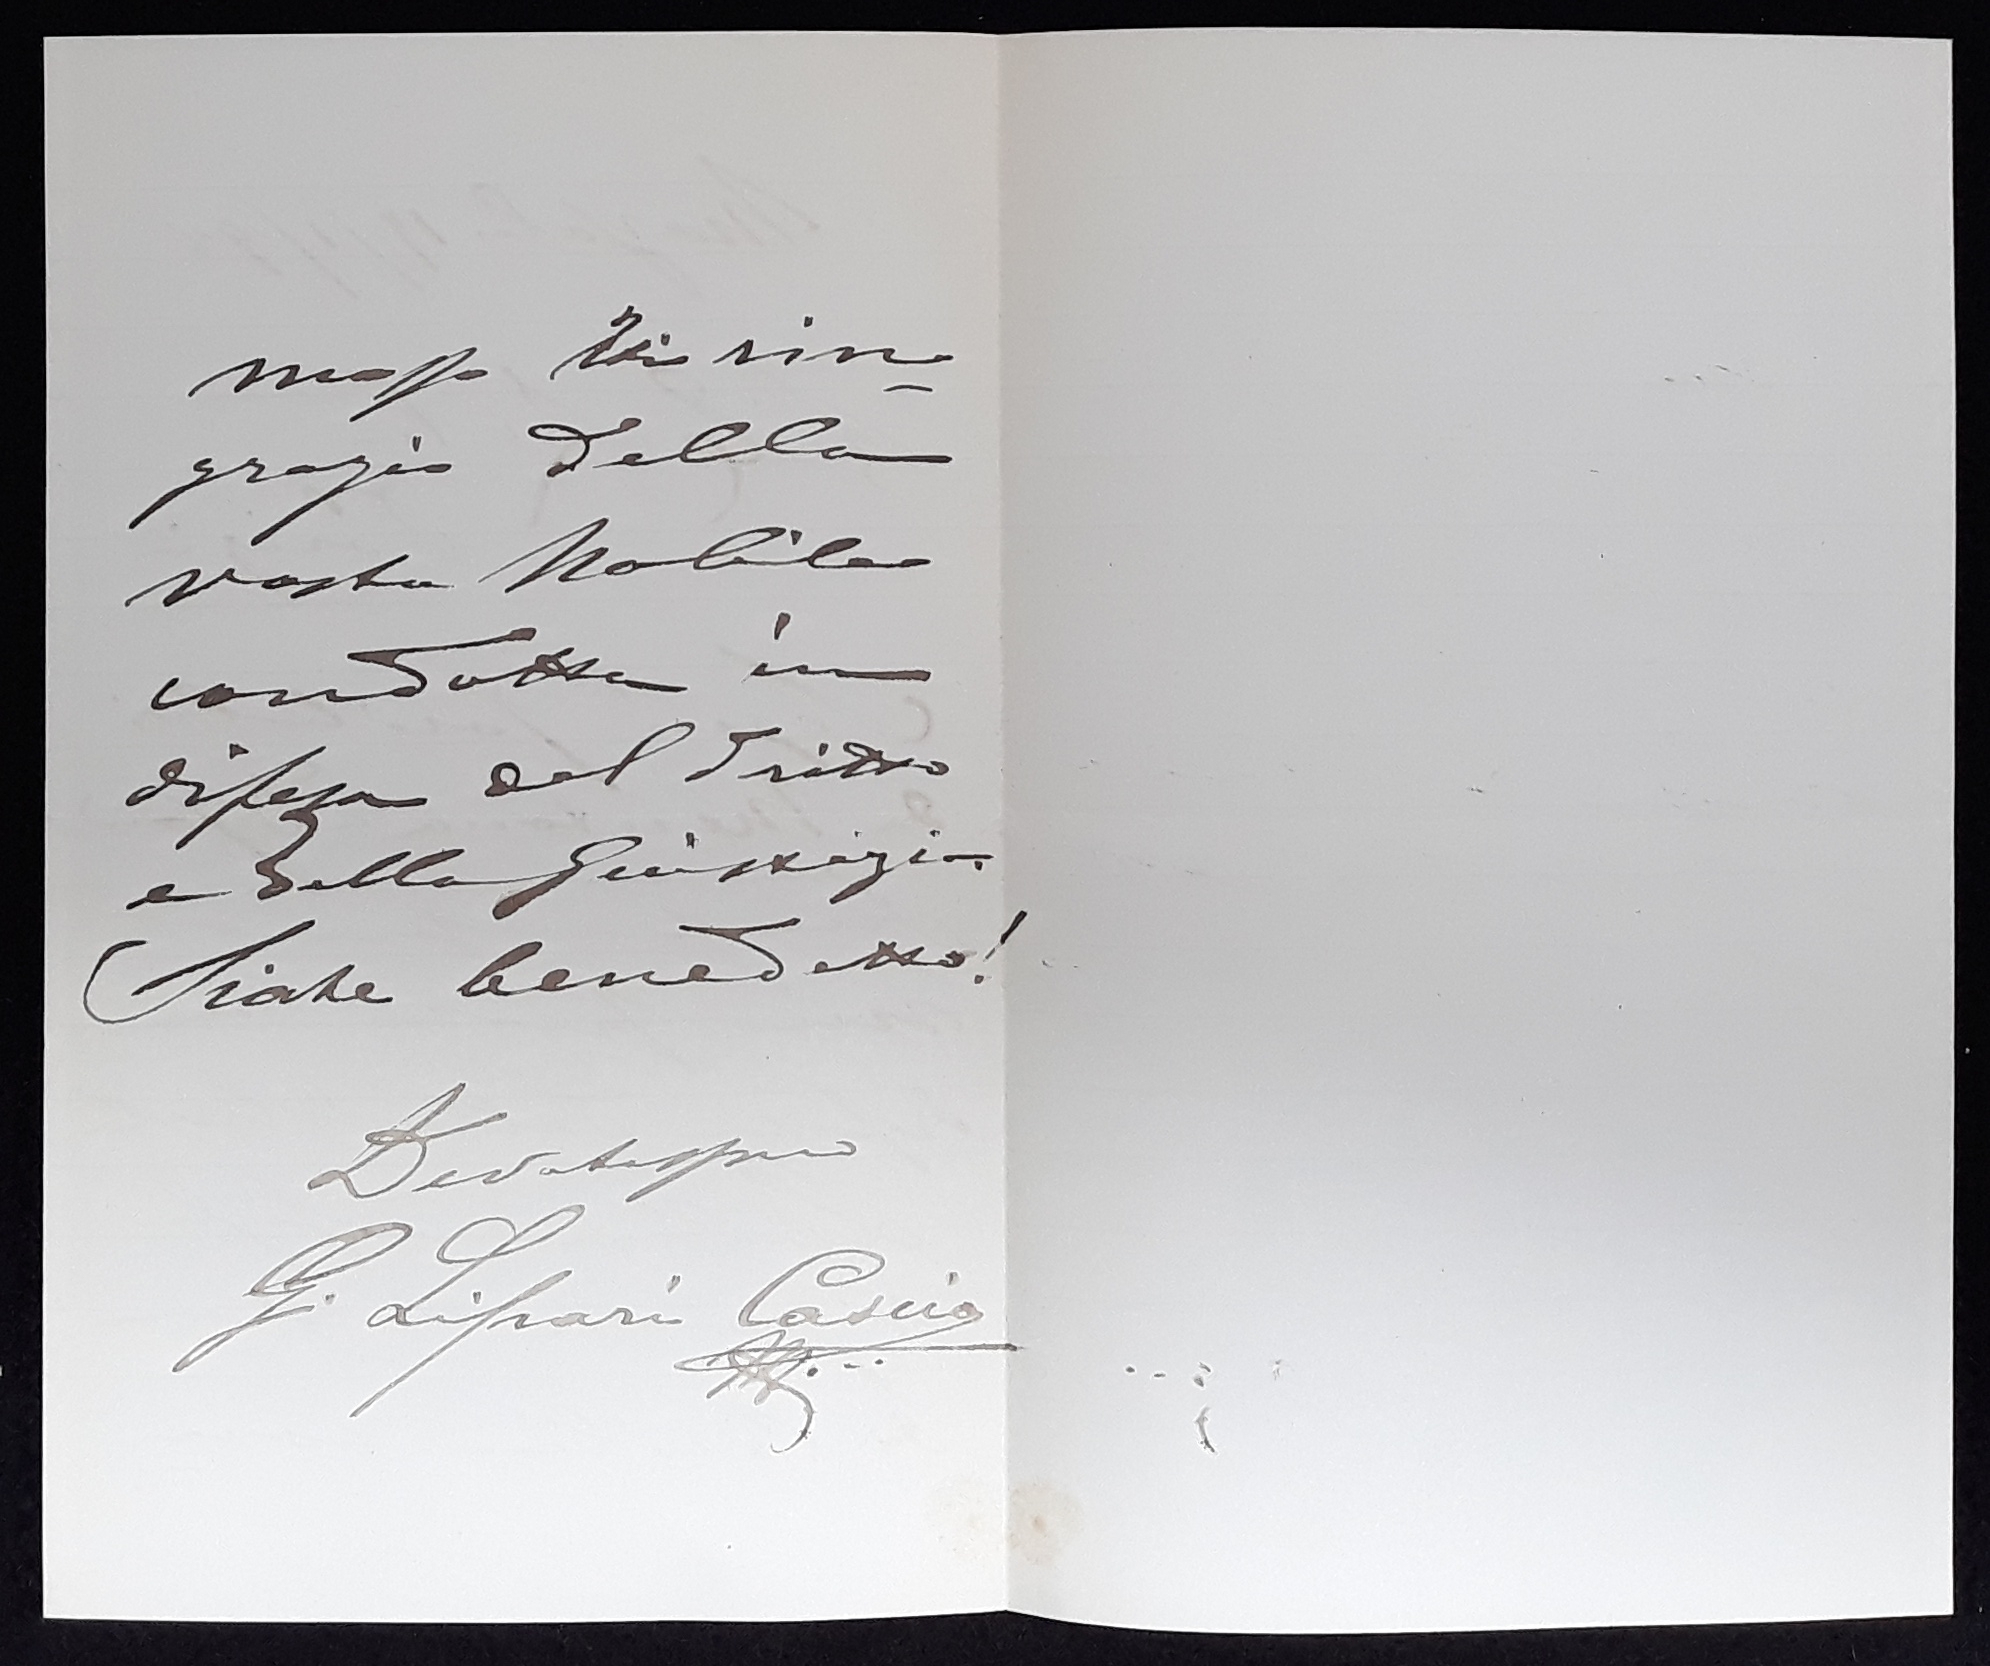 masso Vi rin-
grazio della
vostra Nobile
condotta in
difesa del dritto
e della Giustizia.
Siate benedetto!
Devotissmo
G. Lipari Cascio